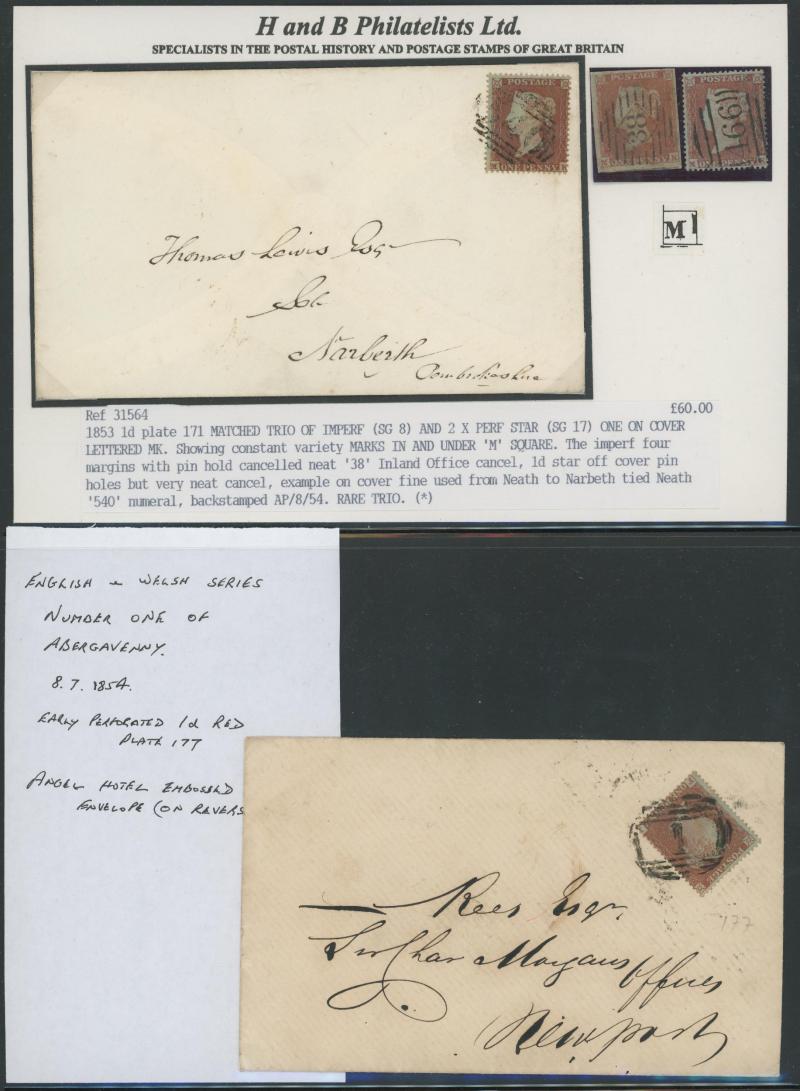 H and B Philatelists Ltd.
SPECIALISTS IN THE POSTAL HISTORY AND POSTAGE STAMPS OF GREAT BRITAIN
POSTAGE
ONE PENNY
POSTAGE
38
M ONE PENNY K
POSTAGE
166
M ONE PENNY K
M
Thomas Lewis Esq
Sol
Narberth
Pembrokeshire
Ref 31564 £60.00
1853 1d plate 171 MATCHED TRIO OF IMPERF (SG 8) AND 2 X PERF STAR (SG 17) ONE ON COVER
LETTERED MK. Showing constant variety MARKS IN AND UNDER 'M' SQUARE. The imperf four
margins with pin hold cancelled neat '38' Inland Office cancel, 1d star off cover pin
holes but very neat cancel, example on cover fine used from Neath to Narbeth tied Neath
'540' numeral, backstamped AP/8/54. RARE TRIO. (*)
ENGLISH & WELSH SERIES
NUMBER ONE OF
ABERGAVENNY.
8.7.1854.
EARLY PERFORATED 1d RED
PLATE 177
ANGEL HOTEL EMBOSSED
ENVELOPE (ON REVERS
1
Rees Esqr.
Sir Chas Morgans Offices
Newport
177